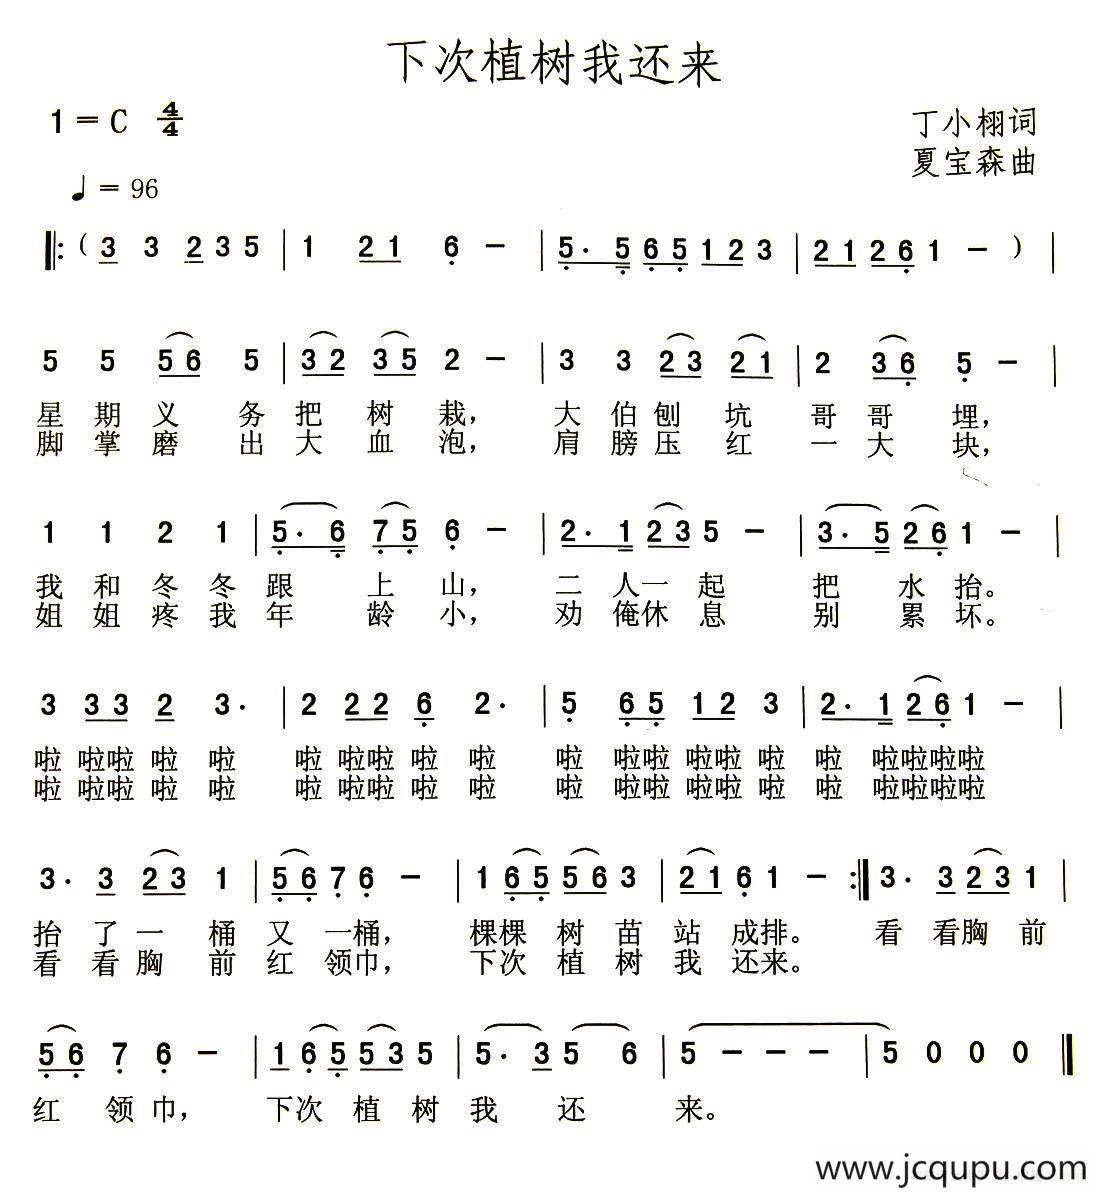 下次植树我还来
1 = C 4/4
丁小栩词
夏宝森曲
♩ = 96
‖: ( 3 3 2 3 5 | 1 2 1 6 – | 5 . 5 6 5 1 2 3 | 2 1 2 6 1 – ) |
5 5 5 6 5 | 3 2 3 5 2 – | 3 3 2 3 2 1 | 2 3 6 5 – |
星期义务把树栽，大伯刨坑哥哥埋，
脚掌磨出大血泡，肩膀压红一大块，
1 1 2 1 | 5 . 6 7 5 6 – | 2 . 1 2 3 5 – | 3 . 5 2 6 1 – |
我和冬冬跟上山，二人一起把水抬。
姐姐疼我年龄小，劝俺休息别累坏。
3 3 3 2 3 . | 2 2 2 6 2 . | 5 6 5 1 2 3 | 2 . 1 2 6 1 – |
啦 啦啦 啦 啦 啦 啦啦 啦 啦 啦 啦啦 啦啦 啦 啦 啦啦啦啦
啦 啦啦 啦 啦 啦 啦啦 啦 啦 啦 啦啦 啦啦 啦 啦 啦啦啦啦
3 . 3 2 3 1 | 5 6 7 6 – | 1 6 5 5 6 3 | 2 1 6 1 – :‖ 3 . 3 2 3 1 |
抬了一桶又一桶，棵棵树苗站成排。看看胸前
看看胸前红领巾，下次植树我还来。
5 6 7 6 – | 1 6 5 5 3 5 | 5 . 3 5 6 | 5 – – – | 5 0 0 0 ‖
红领巾，下次植树我还来。
www.jcqupu.com